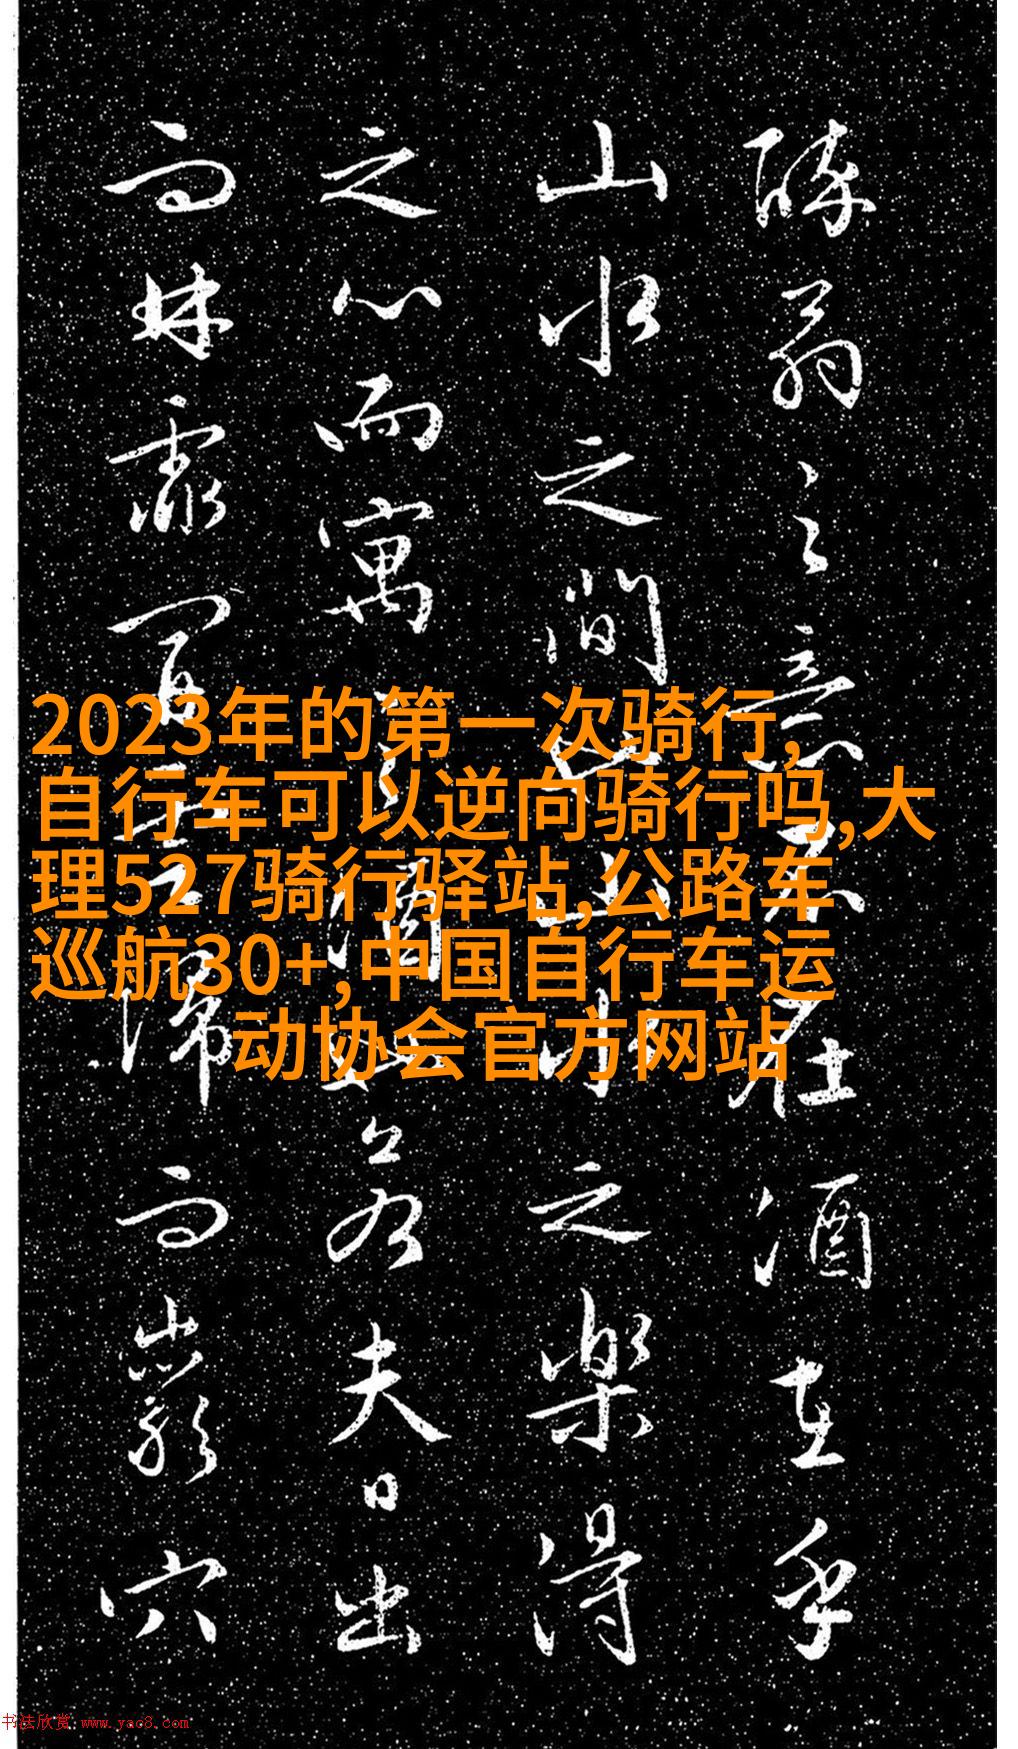 醉翁之意不在酒在乎
山水之間也山水之樂得
之心而寓之酒也若夫日出
而林霏開雲歸而巖穴
2023年的第一次骑行,
自行车可以逆向骑行吗,大
理527骑行驿站,公路车
巡航30+,中国自行车运
动协会官方网站
书法欣赏 www.yac8.com